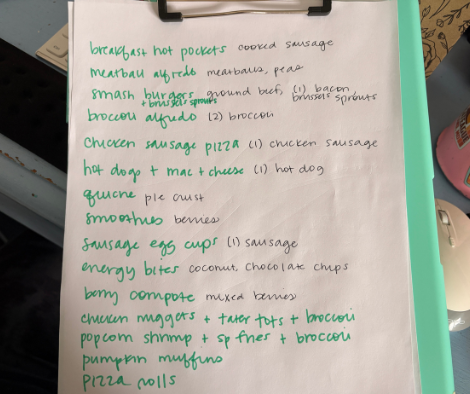 breakfast hot pockets cooked sausage
meatball alfredo meatballs, peas
smash burgers ground beef, (1) bacon
+ brussels sprouts brussels sprouts
broccoli alfredo (2) broccoli
chicken sausage pizza (1) chicken sausage
hot dogs + mac + cheese (1) hot dog
quiche pie crust
smoothies berries
sausage egg cups (1) sausage
energy bites coconut, chocolate chips
berry compote mixed berries
chicken nuggets + tater tots + broccoli
popcorn shrimp + sp fries + broccoli
pumpkin muffins
pizza rolls